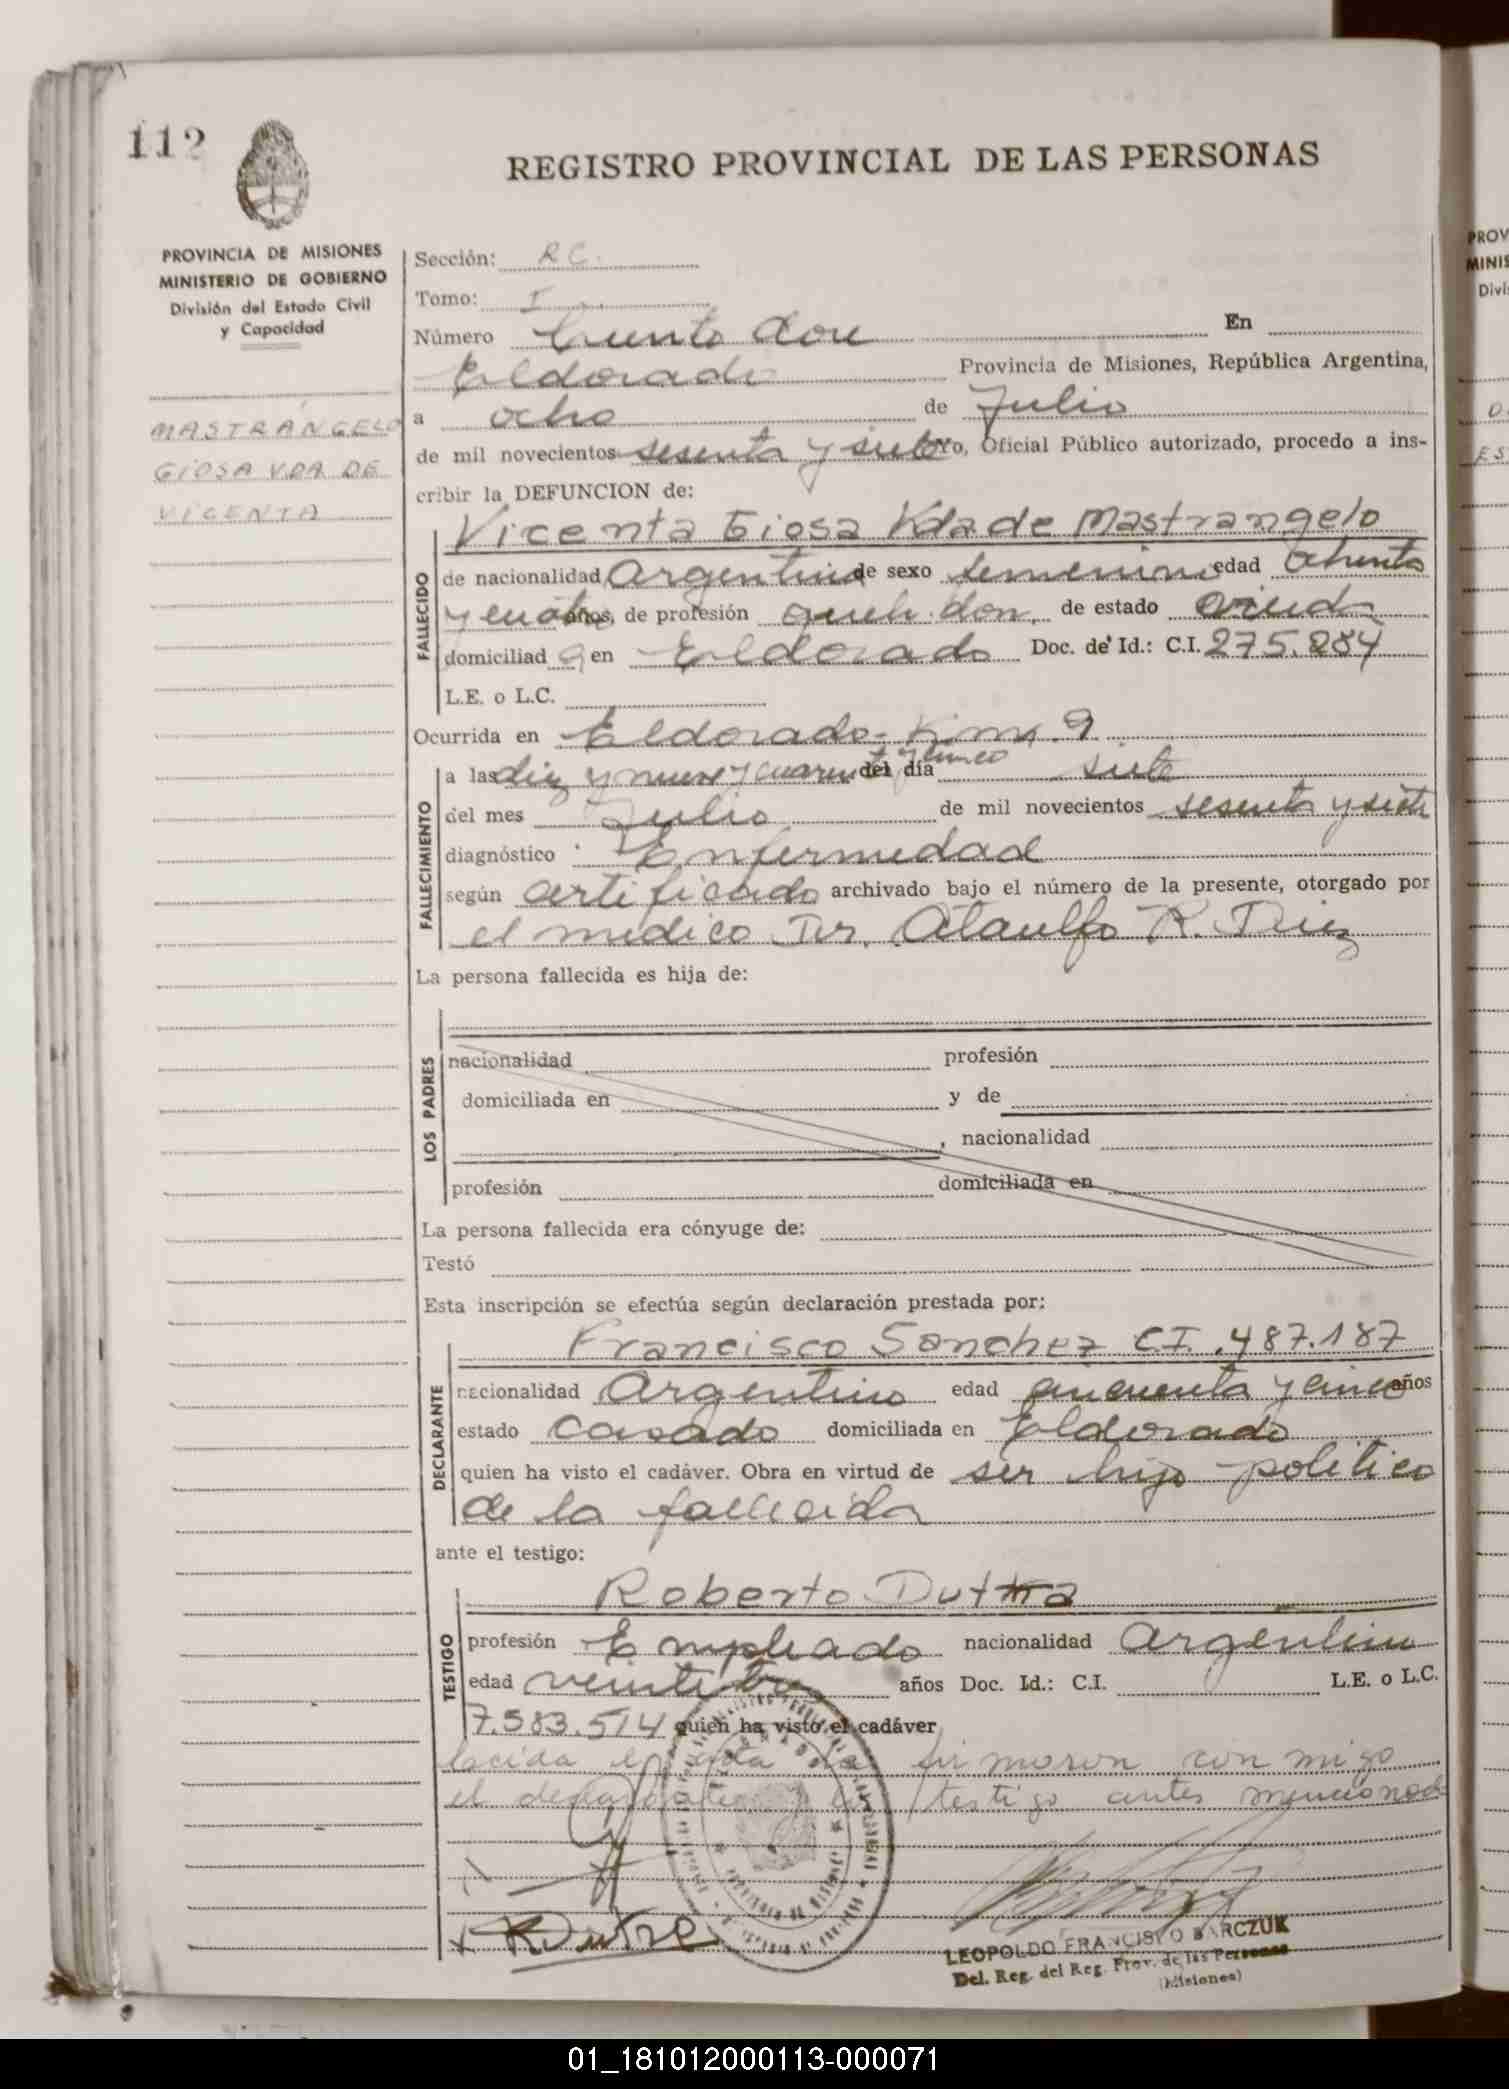 112
REGISTRO PROVINCIAL DE LAS PERSONAS
PROVINCIA DE MISIONES
MINISTERIO DE GOBIERNO
División del Estado Civil
y Capacidad
MASTRÁNGELO
GIOSA VDA DE
VICENTA
Sección: RC.
Tomo: I
Número Ciento doce En
Eldorado Provincia de Misiones, República Argentina,
a ocho de Julio
de mil novecientos sesenta y siete Yo, Oficial Público autorizado, procedo a ins-
cribir la DEFUNCION de:
Vicenta Giosa Vda de Mastrangelo
FALLECIDO
de nacionalidad Argentina de sexo femenino edad ochenta
y cuatro años, de profesión queh. dom. de estado viuda
domiciliad a en Eldorado Doc. de Id.: C.I. 275.284
L.E. o L.C.
Ocurrida en Eldorado - Kms. 9
FALLECIMIENTO
a las diez y nueve y cuarenta y cinco del día siete
del mes Julio de mil novecientos sesenta y siete
diagnóstico Enfermedad
según certificado archivado bajo el número de la presente, otorgado por
el medico Dr. Ataulfo R. Diez
La persona fallecida es hija de:
LOS PADRES
nacionalidad profesión
domiciliada en y de
, nacionalidad
profesión domiciliada en
La persona fallecida era cónyuge de:
Testó
Esta inscripción se efectúa según declaración prestada por:
DECLARANTE
Francisco Sanchez C.I. 487.187
nacionalidad Argentino edad cincuenta y cinco años
estado Casado domiciliada en Eldorado
quien ha visto el cadáver. Obra en virtud de ser hijo politico
de la fallecida
ante el testigo:
TESTIGO
Roberto Dutra
profesión Empleado nacionalidad Argentino
edad veintitres años Doc. Id.: C.I. L.E. o L.C.
7.583.514 quien ha visto el cadáver
Leida el acta la firmaron con migo
el declarante y el testigo antes mencionado
R Dutra
LEOPOLDO FRANCISCO BARCZUK
Del. Reg. del Reg. Prov. de las Personas
(Misiones)
PROV
MINIS
Divi
01_181012000113-000071